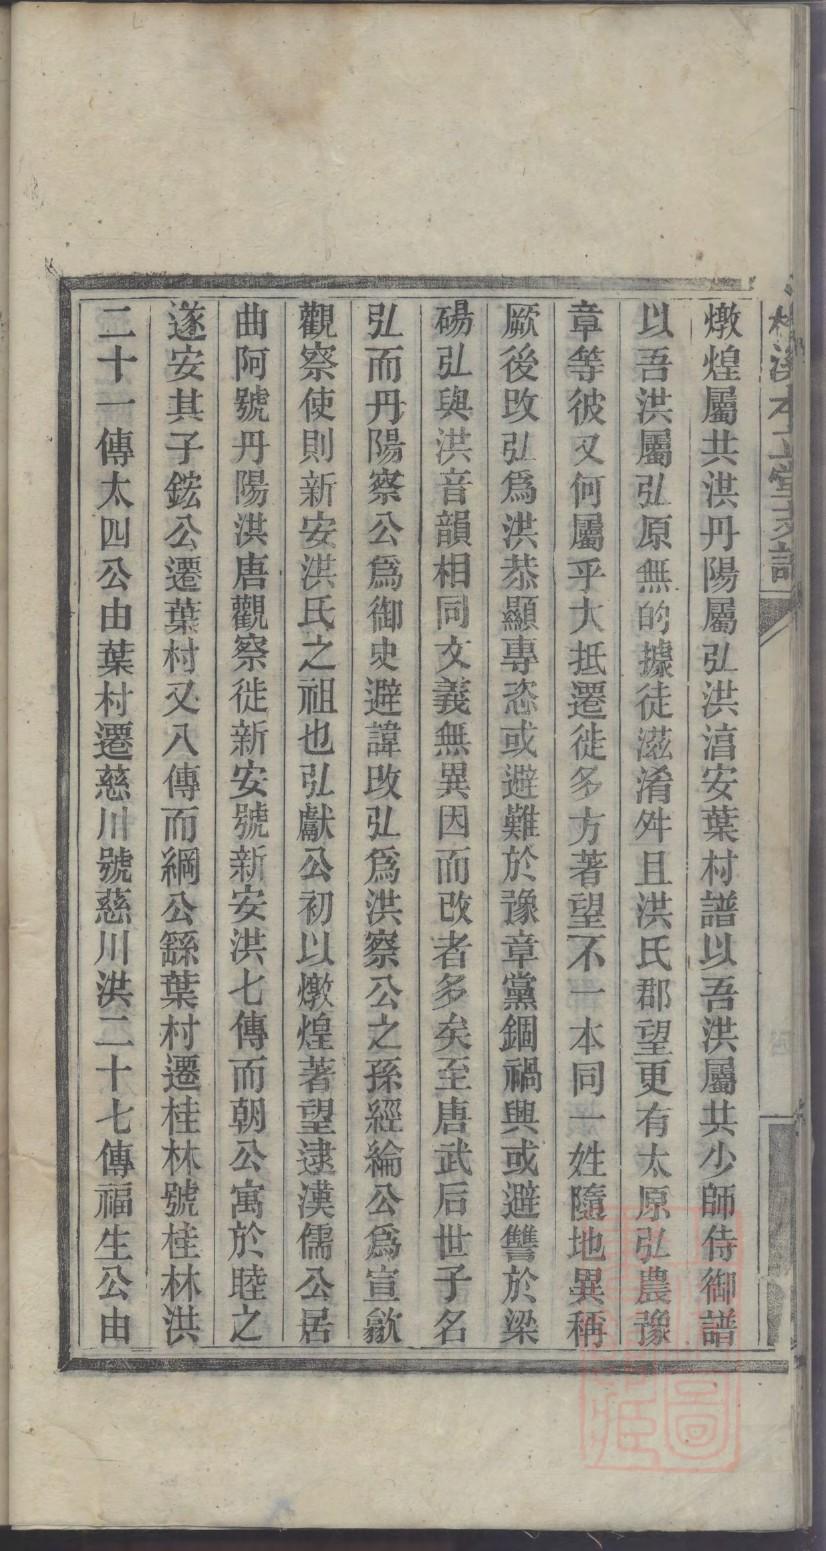 燉煌屬共洪丹陽屬弘洪淯安葉村譜以吾洪屬共少師侍御譜
以吾洪屬弘原無的據徒滋淆舛且洪氏郡望更有太原弘農豫
章等彼又何屬乎大抵遷徙多方著望不一本同一姓隨地異稱
厥後改弘爲洪恭顯專恣或避難於豫章黨錮禍興或避讐於梁
碭弘與洪音韻相同文義無異因而改者多矣至唐武后世子名
弘而丹陽察公爲御史避諱改弘爲洪察公之孫經綸公爲宣歙
觀察使則新安洪氏之祖也弘獻公初以燉煌著望逮漢儒公居
曲阿號丹陽洪唐觀察徙新安號新安洪七傳而朝公寓於睦之
遂安其子鋐公遷葉村又八傳而綱公繇葉村遷桂林號桂林洪
二十一傳太四公由葉村遷慈川號慈川洪二十七傳福生公由